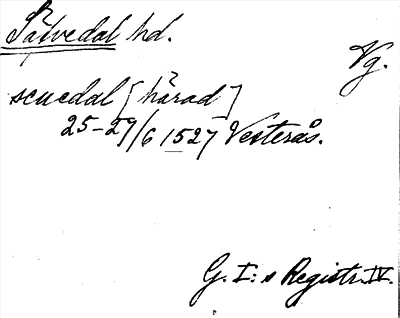 Sätvedal hd.
Vg.
scuedal [härad]
25-29/6 1527 Vesterås.
G. I:s Registr. IV.